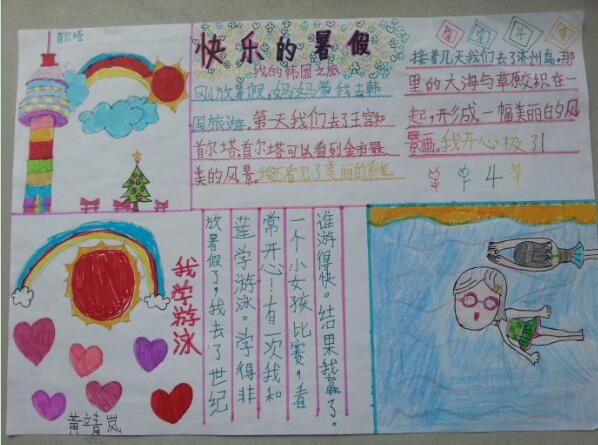 首尔塔
快乐的暑假
我的韩国之旅
刚放暑假,妈妈带我去韩
国旅游。第天我们去了王宫和
首尔塔。首尔塔可以看到全市最
美的风景。我还看见了美丽的彩虹。
接着几天我们去了济州岛。那
里的大海与草原织在一
起,形成一幅美丽的风
景画。我开心极了!
4
我学游泳
放暑假了,我去了世纪
莲学游泳。学得非
常开心!有一次我和
一个小女孩比赛,看
谁游得快。结果我赢了。
黄靖岚